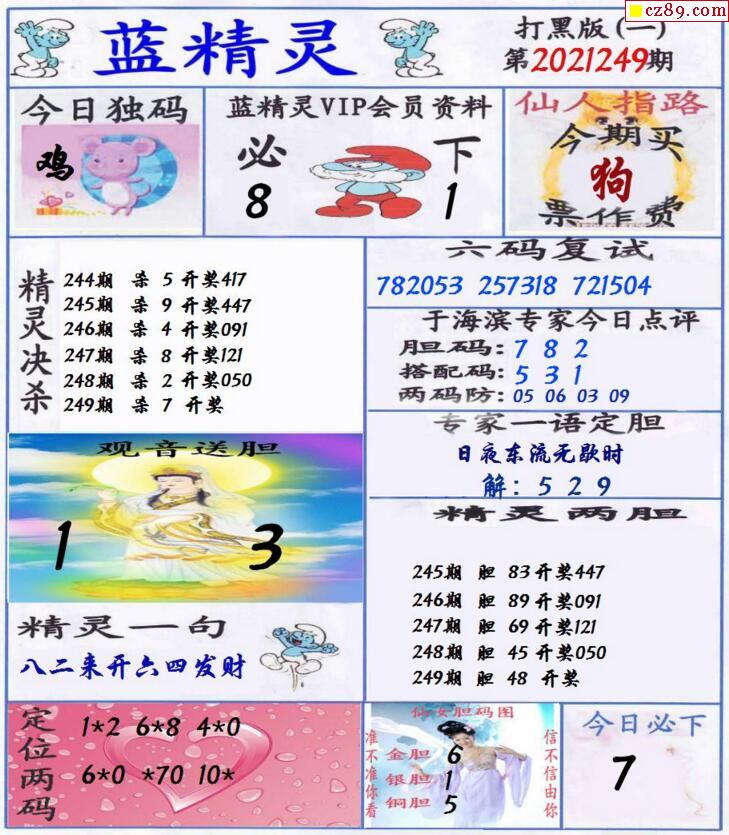 cz89.com
蓝精灵
打黑版(一)
第2021249期
今日独码
鸡
蓝精灵VIP会员资料
必 下
8 1
仙人指路
今期买
狗
票作费
精灵决杀
244期 杀 5 开奖417
245期 杀 9 开奖447
246期 杀 4 开奖091
247期 杀 8 开奖121
248期 杀 2 开奖050
249期 杀 7 开奖
六码复试
782053 257318 721504
于海滨专家今日点评
胆码: 7 8 2
搭配码: 5 3 1
两码防: 05 06 03 09
专家一语定胆
日夜东流无歇时
解: 5 2 9
观音送胆
1 3
精灵两胆
245期 胆 83 开奖447
246期 胆 89 开奖091
247期 胆 69 开奖121
248期 胆 45 开奖050
249期 胆 48 开奖
精灵一句
八二来开六四发财
定位两码
1*2 6*8 4*0
6*0 *70 10*
仙女胆码图
准不准你看
金胆 6
银胆 1
铜胆 5
信不信由你
今日必下
7